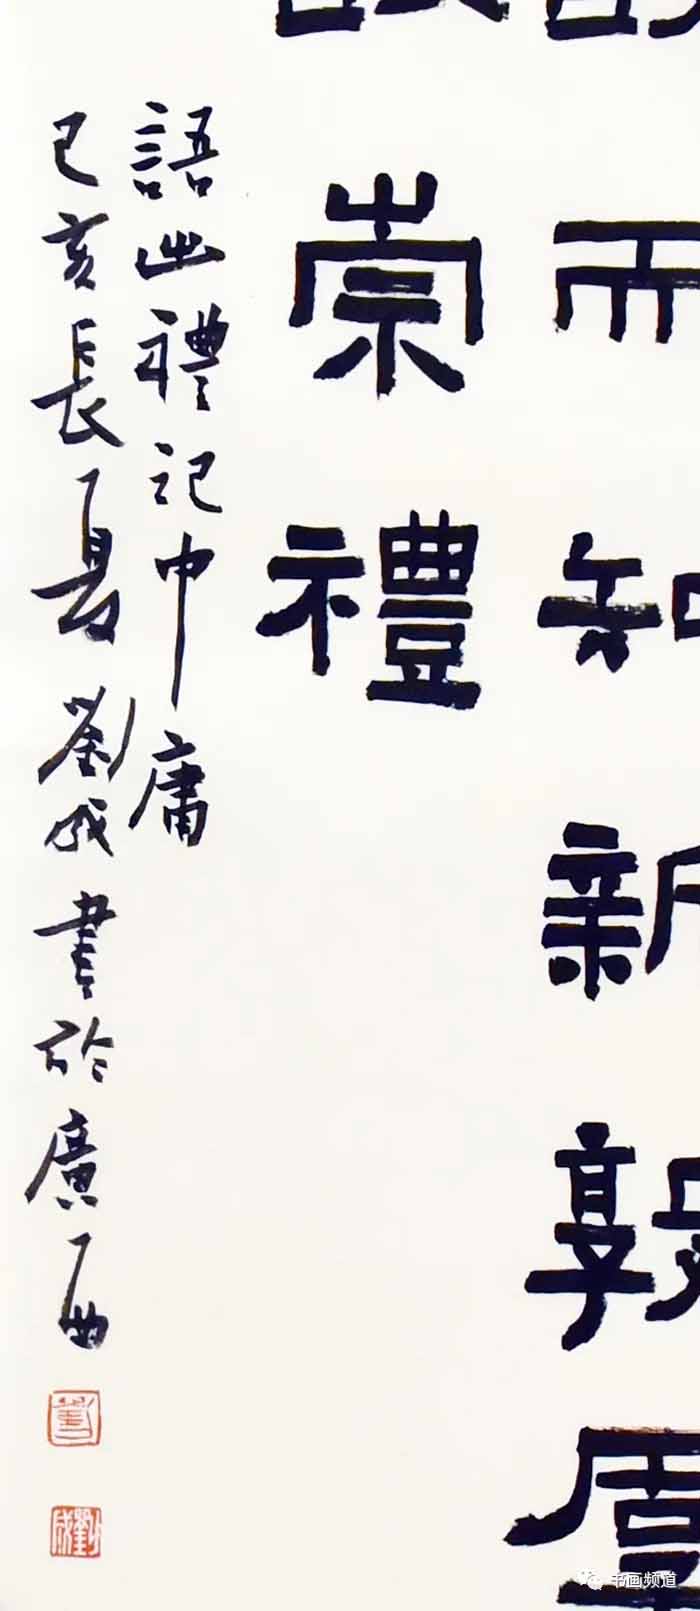 而知新敦厚
崇禮
語出禮記中庸
己亥長夏劉成書於廣西
劉成
书画频道